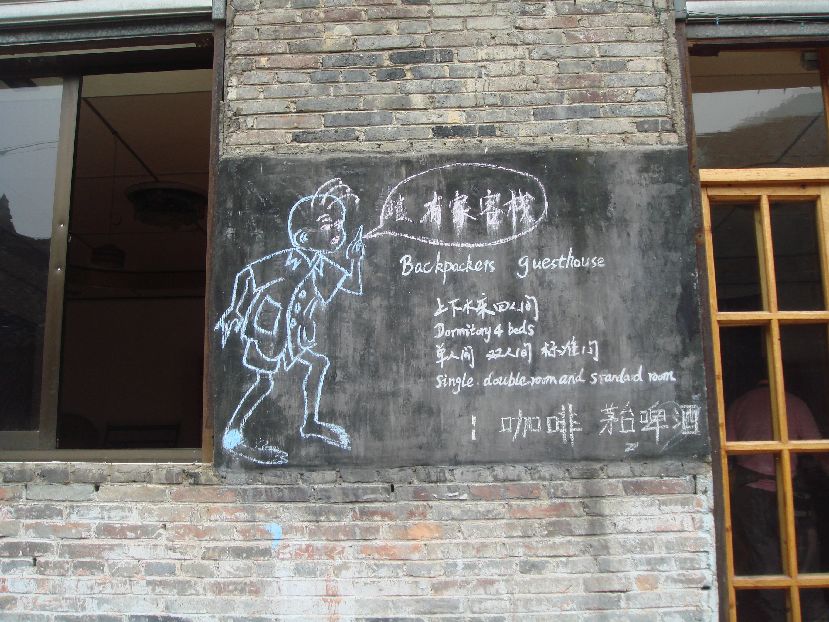 有家客栈
Backpackers guesthouse
上下木床四人间
Dormitory 4 beds
单人间 双人间 标准间
Single doubleroom and srandard room
咖啡 茅台啤酒